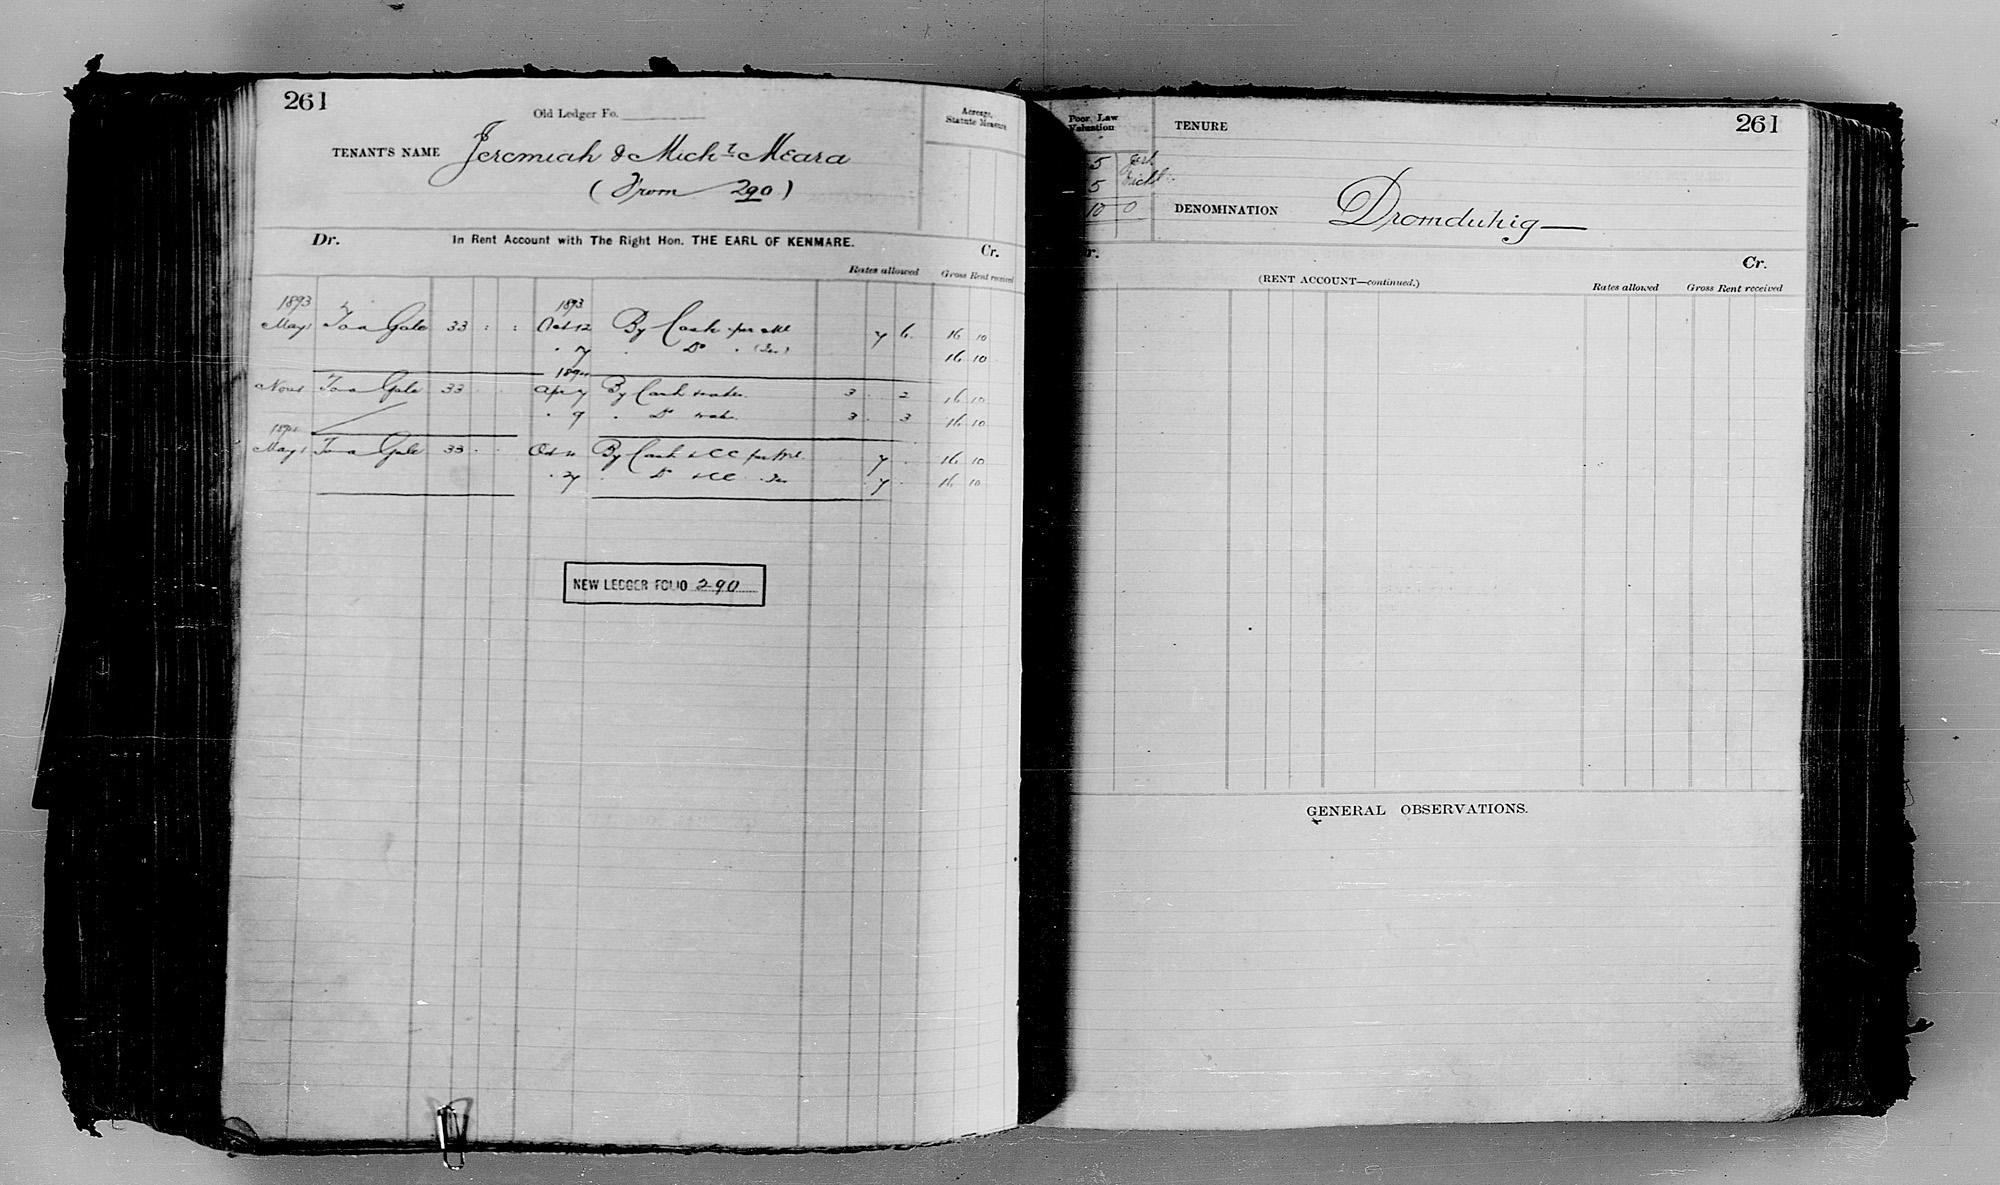 261
Old Ledger Fo.
Acreage, Statute Measure
TENANT'S NAME Jeremiah & Michl Meara
(From 290)
Dr. In Rent Account with The Right Hon. THE EARL OF KENMARE. Cr.
Rates allowed Gross Rent received
1893 1893
May 1 To a Gale 33 : : Oct 12 By Cash per Ml 7 6 16 10
16 10
Nov 1 To a Gale 33 Apr 7 By Cash 3 2 16 10
9 Do 3 3 16 10
May 1 To a Gale 33 Oct 11 By Cash & CC per Ml. 7 16 10
27 Do & CC 7 16 10
NEW LEDGER FOLIO 290
261
Poor Law Valuation
TENURE
5 Jer
5 Michl
10 0
DENOMINATION Dromduhig
Dr. Cr.
(RENT ACCOUNT—continued.)
Rates allowed Gross Rent received
GENERAL OBSERVATIONS.